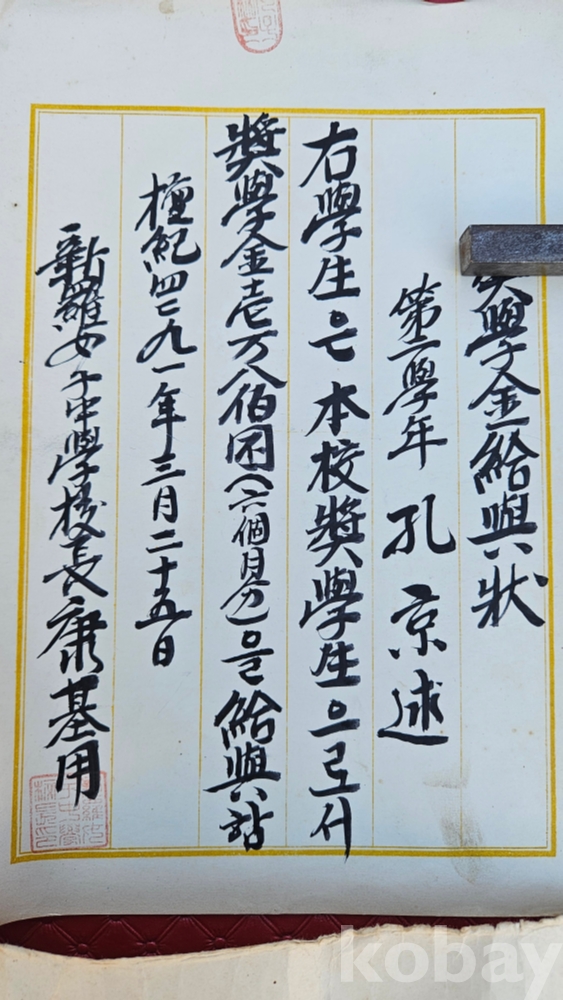 獎學金給與狀
第二學年 孔京述
右學生은 本校獎學生으로서
獎學金壱万八佰圜(六個月分)을 給與함
檀紀四二九一年三月二十五日
新羅女子中學校長 康基用
kobay